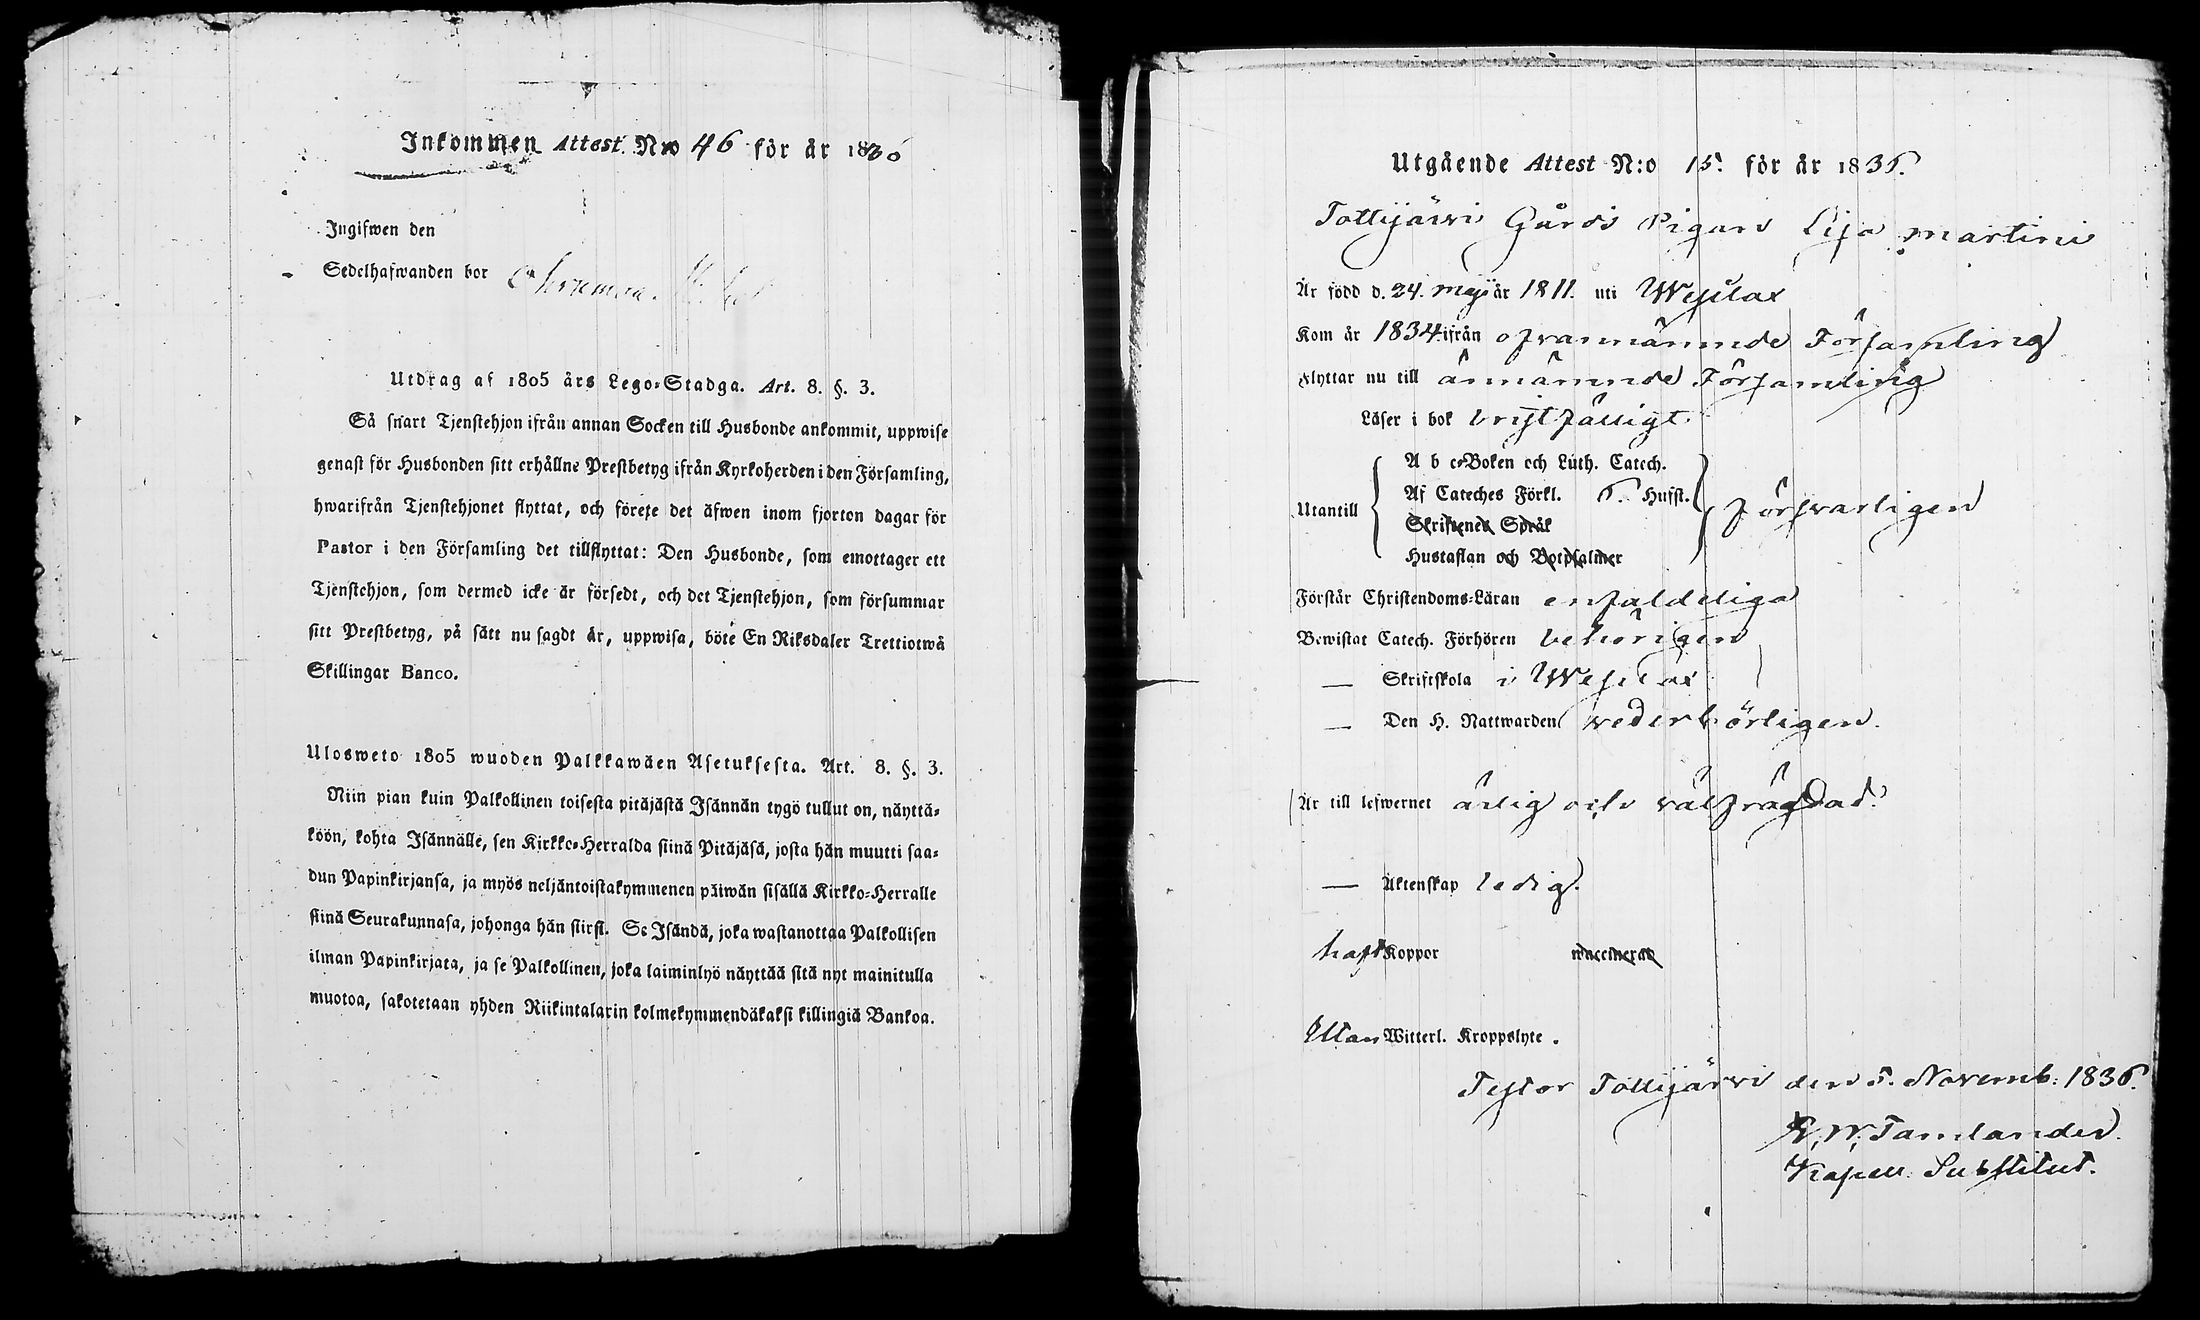 Inkommen Attest N:o 46 för år 1836
Ingifwen den
Sedelhafwanden bor
Utdrag af 1805 års Lego-Stadga. Art. 8. §. 3.
Så snart Tjenstehjon ifrån annan Socken till Husbonde ankommit, uppwise
genast för Husbonden sitt erhållne Prestbetyg ifrån Kyrkoherden i den Församling,
hwarifrån Tjenstehjonet flyttat, och förete det äfwen inom fjorton dagar för
Pastor i den Församling det tillflyttat: Den Husbonde, som emottager ett
Tjenstehjon, som dermed icke är försedt, och det Tjenstehjon, som försummar
sitt Prestbetyg, på sätt nu sagdt är, uppwisa, böte En Riksdaler Trettiotwå
Skillingar Banco.
Ulosweto 1805 wuoden Palkkawäen Asetuksesta. Art. 8. §. 3.
Niin pian kuin Palkollinen toisesta pitäjästä Isännän tygö tullut on, näyttä-
köön, kohta Isännälle, sen Kirkko-Herralda siinä Pitäjäsä, josta hän muutti saa-
dun Papinkirjansa, ja myös neljäntoistakymmenen päiwän sisällä Kirkko-Herralle
siinä Seurakunnasa, johonga hän siirsi. Se Isändä, joka wastanottaa Palkollisen
ilman Papinkirjata, ja se Palkollinen, joka laiminlyö näyttää sitä nyt mainitulla
muotoa, sakotetaan yhden Riikintalarin kolmekymmendäkaksi killingiä Bankoa.
Utgående Attest N:o 15. för år 1836.
Tottijärvi Gårds Pigan Lisa Martini
Är född d. 24. Maji år 1811. uti Wesilax
Kom år 1834 ifrån ofvannämnde Församling
Flyttar nu till ännämnde Församling
Läser i bok bristfälligt.
A b c-Boken och Luth. Catech.
Af Cateches Förkl. 6. Hufst.
Utantill försvarligen
Skriftenes Språk
Hustaflan och Botpsalmer
Förstår Christendoms-Läran enfaldeliga
Bewistat Catech. Förhören behörigen
— Skriftskola i Wesilax
— Den H. Nattwarden vederbörligen.
Är till lefwernet ärlig och välfrägdad.
— Äktenskap ledig.
haft Koppor waccinerad
Utan Witterl. Kroppslyte.
Testor Tottijärvi den 5. Novemb: 1836.
W. Tamlander.
Kapell. Substitut.